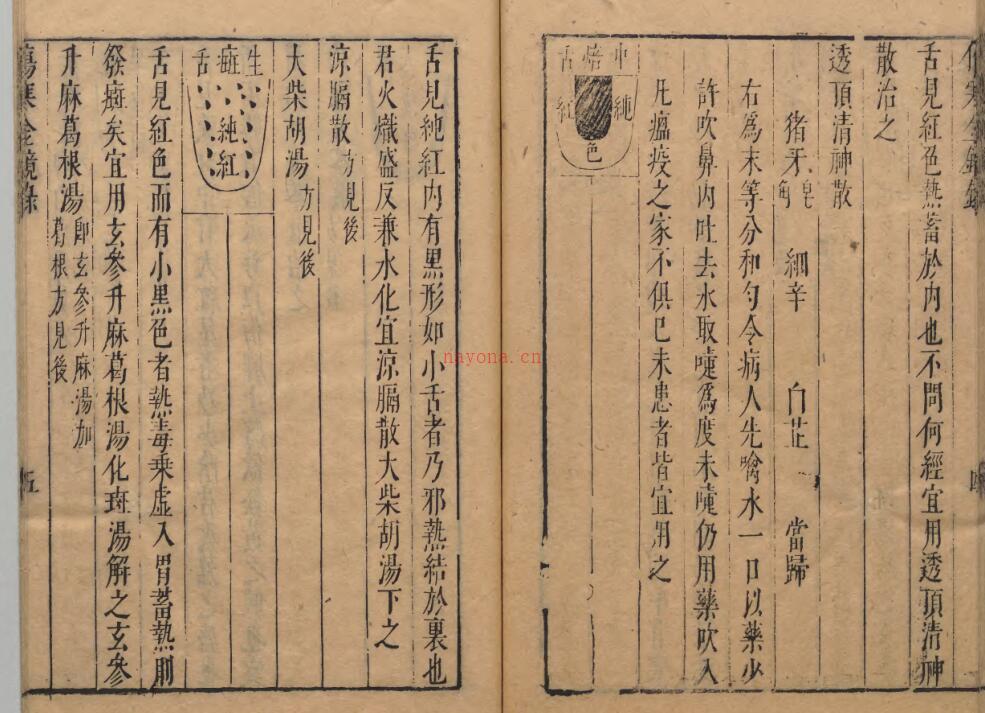 舌見紅色熱蓄於内也不問何經宜用透頂清神
散治之
透頂清神散
猪牙皂角　細辛　白芷　當歸
右爲末等分和匀令病人先噙水一口以藥少
許吹鼻内吐去水取嚏爲度未嚏仍用藥吹入
凡瘟疫之家不俱已未患者皆宜用之
中焙舌
純紅色
舌見純紅内有黑形如小舌者乃邪熱結於裏也
君火熾盛反兼水化宜涼膈散大柴胡湯下之
涼膈散方見後
大柴胡湯方見後
生斑舌
純紅
舌見紅色而有小黑色者熱毒乘虛入胃蓄熱則
發斑矣宜用玄參升麻葛根湯化斑湯解之玄參
升麻葛根湯即玄參升麻湯加
葛根方見後
傷寒全鏡錄
五
nayona.cn